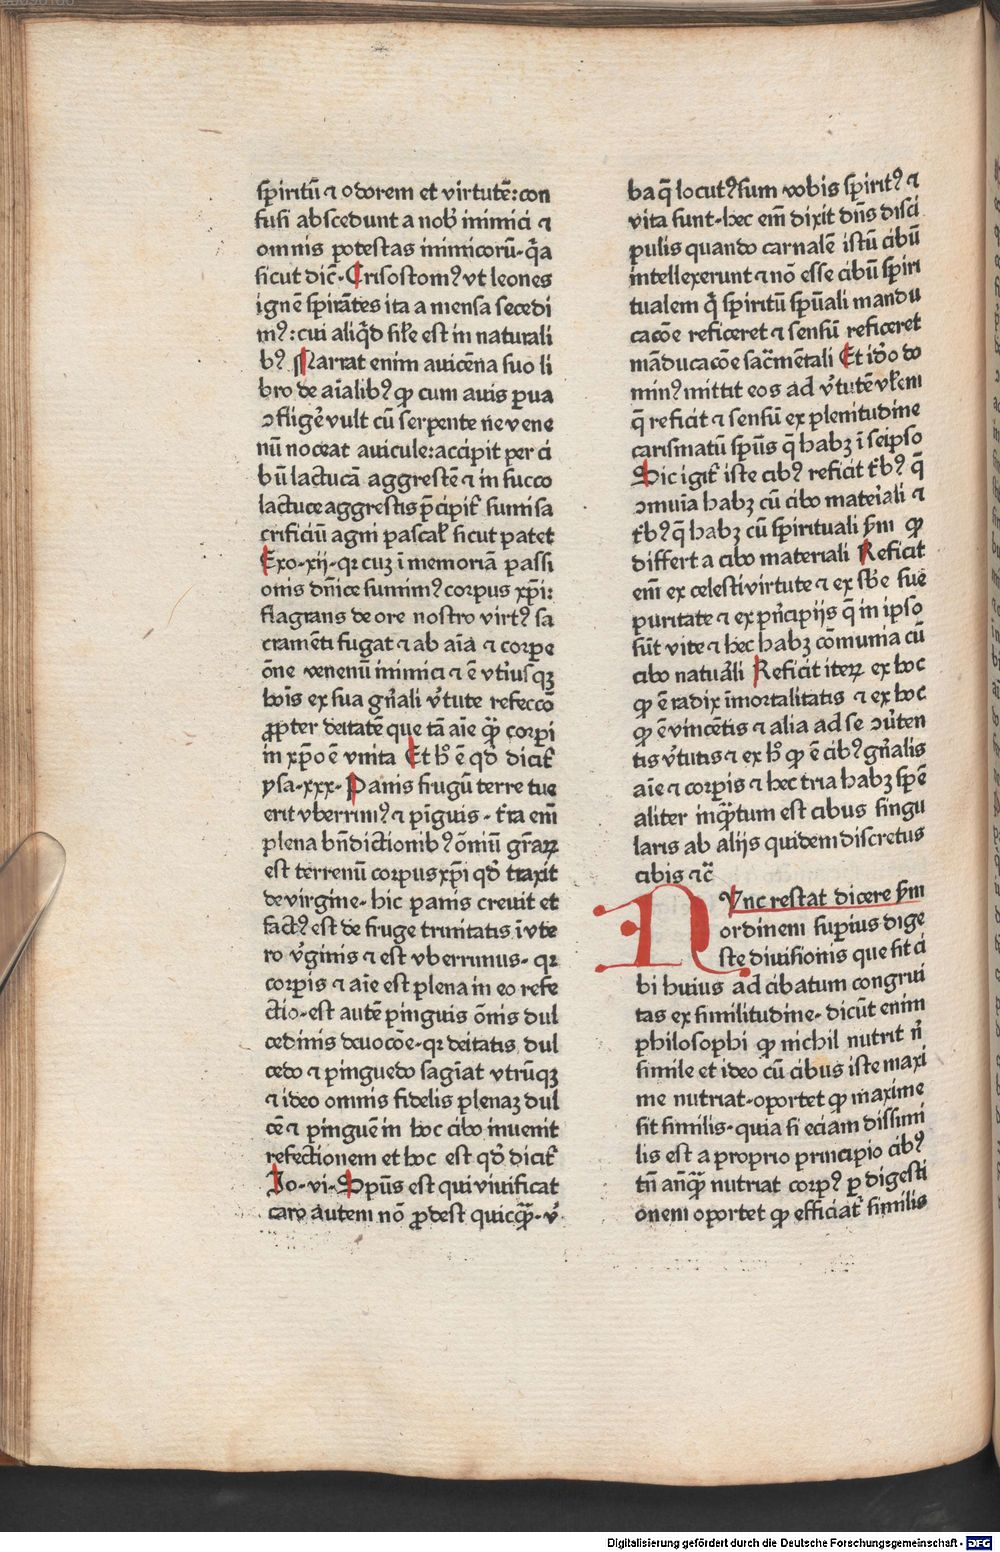 spiritū ⁊ odorem et virtutē: con
fusi abscedunt a nob̄ inimici ⁊
omnis potestas inimicorū· q̄a
sicut dic̄· Crisostom⁹ vt leones
ignē spirātes ita a mensa secedi
m⁹: cui aliq̄d sil̄e est in naturali
b⁹ Narrat enim auicēna suo li
bro de aīalib⁹ ꝙ cum auis ꝑua
ↄfligẽ vult cū serpente ne vene
nū noceat auicule: accipit per ci
bū lactucā aggrestē ⁊ in succo
lactuce aggrestis p̄cipit᷑ sumi sa
crificiū agni pascal᷑ sicut patet
Exo·xij· qꝛ cuꝫ ī memoriā passi
onis dn̄ice sumim⁹ corpus xp̄i:
flagrans de ore nostro virt⁹ sa
cramēti fugat ⁊ ab aīa ⁊ corpe
ōne venenū inimici ⁊ ē vtiusqꝫ
hoīs ex sua gn̄ali v̄tute refeccō
ꝓpter deitatē que tā aīe q̄ꝫ corpi
in xp̄o ē vnita Et h̄ ē qd̄ dicit᷑
psa·xxx· Panis frugū terre tue
erit vberrim⁹ ⁊ pīguis· t̄ra enī
plena bn̄dictionib⁹ ōniū gr̄aꝝ
est terrenū corpus xp̄i qd̄ traxit
de virgine· hic panis creuit et
fact⁹ est de fruge trinitatis ī vte
ro v̄ginis ⁊ est vberrimus· qꝛ
corpis ⁊ aīe est plena in eo refe
ctio· est autē pinguis ōnis dul
cedinis deuocōe· qꝛ deitatis dul
cedo ⁊ pinguedo sagīat vtrūqꝫ
⁊ ideo omnis fidelis plenaꝫ dul
cē ⁊ pinguē in hoc cibo inuenit
refectionem et hoc est qd̄ dicit᷑
Io·vi· Spūs est qui viuificat
caro autem nō ꝓdest quicq̄ꝫ· v̄
ba q̄ locut⁹ sum vobis spirit⁹ ⁊
vita sunt· hec em̄ dixit dn̄s disci
pulis quando carnalē istū cibū
intellexerunt ⁊ nō esse cibū spiri
tualem q̄ spiritū spūali mandu
cacōe reficeret ⁊ sensū reficeret
māducacōe sac̄mētali Et id̄o do
min⁹ mittit eos ad v̄tutē vl̄em
q̄ reficit ⁊ sensū ex plenitudine
carismatū spūs q̄ habꝫ ī seipso
Sic igit᷑ iste cib⁹ reficit t̄b⁹ q̄
ↄmuīa habꝫ cū cibo mater̄iali ⁊
t̄b⁹ q̄ habꝫ cū spirituali s̄m ꝙ
differt a cibo materiali Reficit
em̄ ex celesti virtute ⁊ ex sb̄e sue
puritate ⁊ ex pn̄cipijs q̄ in ipso
sūt vite ⁊ hec habꝫ cōmunia cū
cibo natur̄ali Reficit iteꝝ ex hoc
ꝙ ē radix īmortalitatis ⁊ ex hoc
ꝙ ē vincētis ⁊ alia ad se ↄūten
tis v̄tutis ⁊ ex h̄ ꝙ ē cib⁹ gn̄alis
aīe ⁊ corpis ⁊ hec tria habꝫ sp̄ē
aliter inq̄ꝫtum est cibus singu
laris ab alijs quidem discretus
cibis ⁊c̄
NVnc restat dicere s̄m
ordinem supius dige
ste diuisionis que sit ci
bi huius ad cibatum congrui
tas ex similitudine· dicūt enim
philosophi ꝙ nichil nutrit n̄
simile et ideo cū cibus iste maxi
me nutriat· oportet ꝙ maxime
sit similis· quia si eciam dissimi
lis est a proprio principio cib⁹
tn̄ anq̄ꝫ nutriat corp⁹ ꝑ digesti
onem oportet ꝙ efficiat᷑ similis
Digitalisierung gefördert durch die Deutsche Forschungsgemeinschaft - DFG